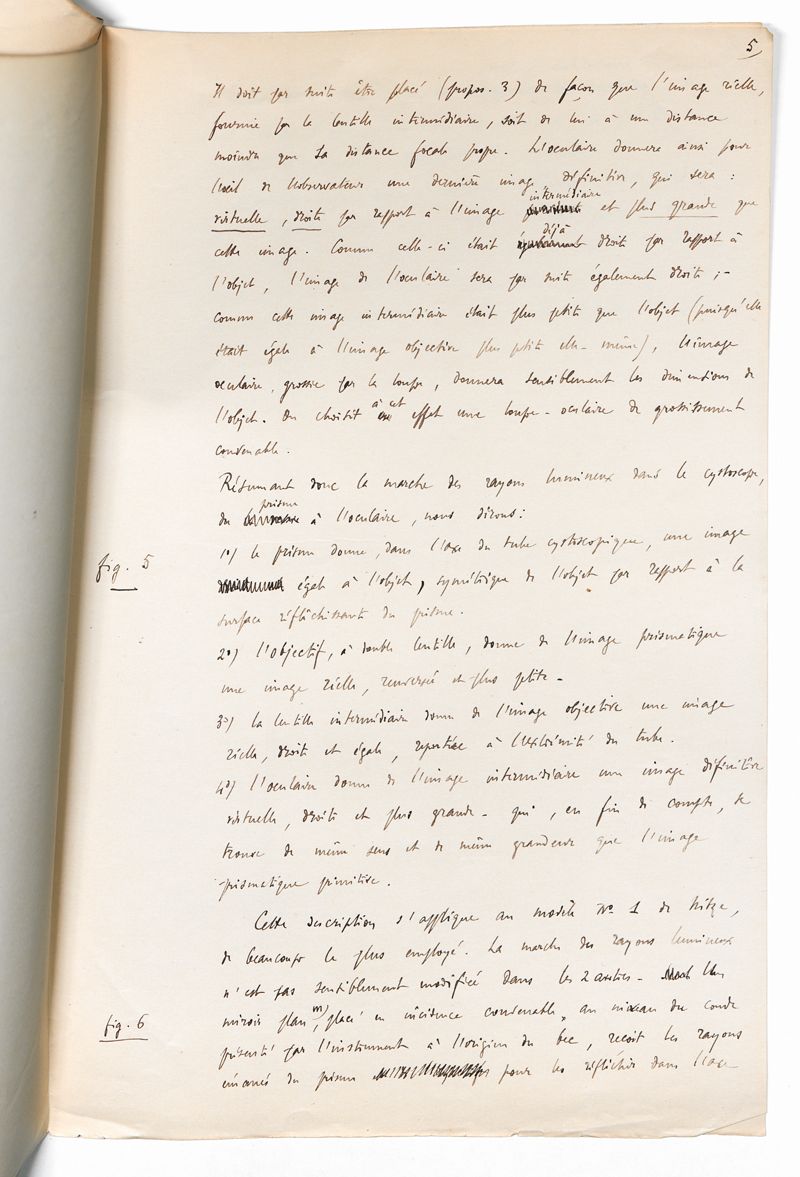 5
Il doit par suite être placé (propos. 3) de façon que l'image réelle,
fournie par la lentille intermédiaire, soit de lui à une distance
moindre que sa distance focale propre. L'oculaire donnera ainsi pour
l'œil de l'observateur une dernière image, définitive, qui sera :
intermédiaire
virtuelle, droite par rapport à l'image et plus grande que
déjà
cette image. Comme celle-ci était droite par rapport à
l'objet, l'image de l'oculaire sera par suite également droite ; -
comme cette image intermédiaire était plus petite que l'objet (puisqu'elle
était égale à l'image objective plus petite elle-même), l'image
oculaire, grossie par la loupe, donnera sensiblement les dimensions de
à cet
l'objet. On choisit effet une loupe-oculaire de grossissement
convenable.
Résumant donc la marche des rayons lumineux dans le cystoscope,
prisme
du à l'oculaire, nous dirons :
fig. 5
1°) le prisme donne, dans l'axe du tube cystoscopique, une image
égale à l'objet, symétrique de l'objet par rapport à la
surface réfléchissante du prisme.
2°) l'objectif, à double lentille, donne de l'image prismatique
une image réelle, renversée et plus petite -
3°) la lentille intermédiaire donne de l'image objective une image
réelle, droite et égale, reportée à l'extrémité du tube.
4°) l'oculaire donne de l'image intermédiaire une image définitive
virtuelle, droite et plus grande - qui, en fin de compte, se
trouve de même sens et de même grandeur que l'image
prismatique primitive.
Cette description s'applique au modèle No 1 de Nitze,
de beaucoup le plus employé. La marche des rayons lumineux
n'est pas sensiblement modifiée dans les 2 autres - Un
fig. 6
miroir plan (m), placé en incidence convenable, au niveau du coude
présenté par l'instrument à l'origine du bec, reçoit les rayons
émanés du prisme pour les réfléchir dans l'axe